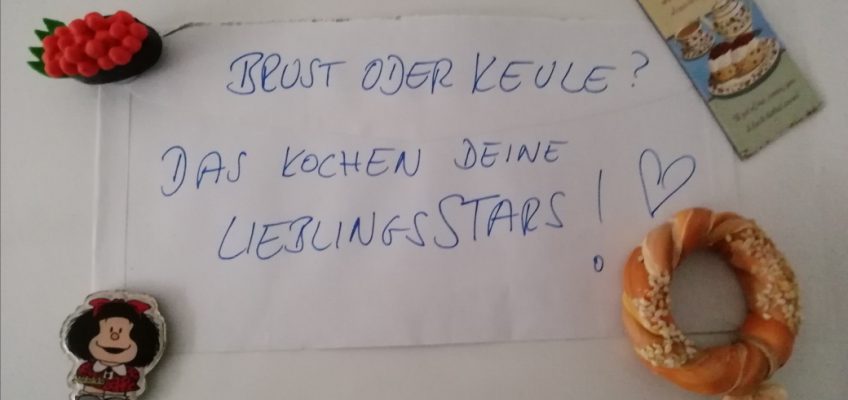 BRUST ODER KEULE?
DAS KOCHEN DEINE
LIEBLINGSSTARS! ♡